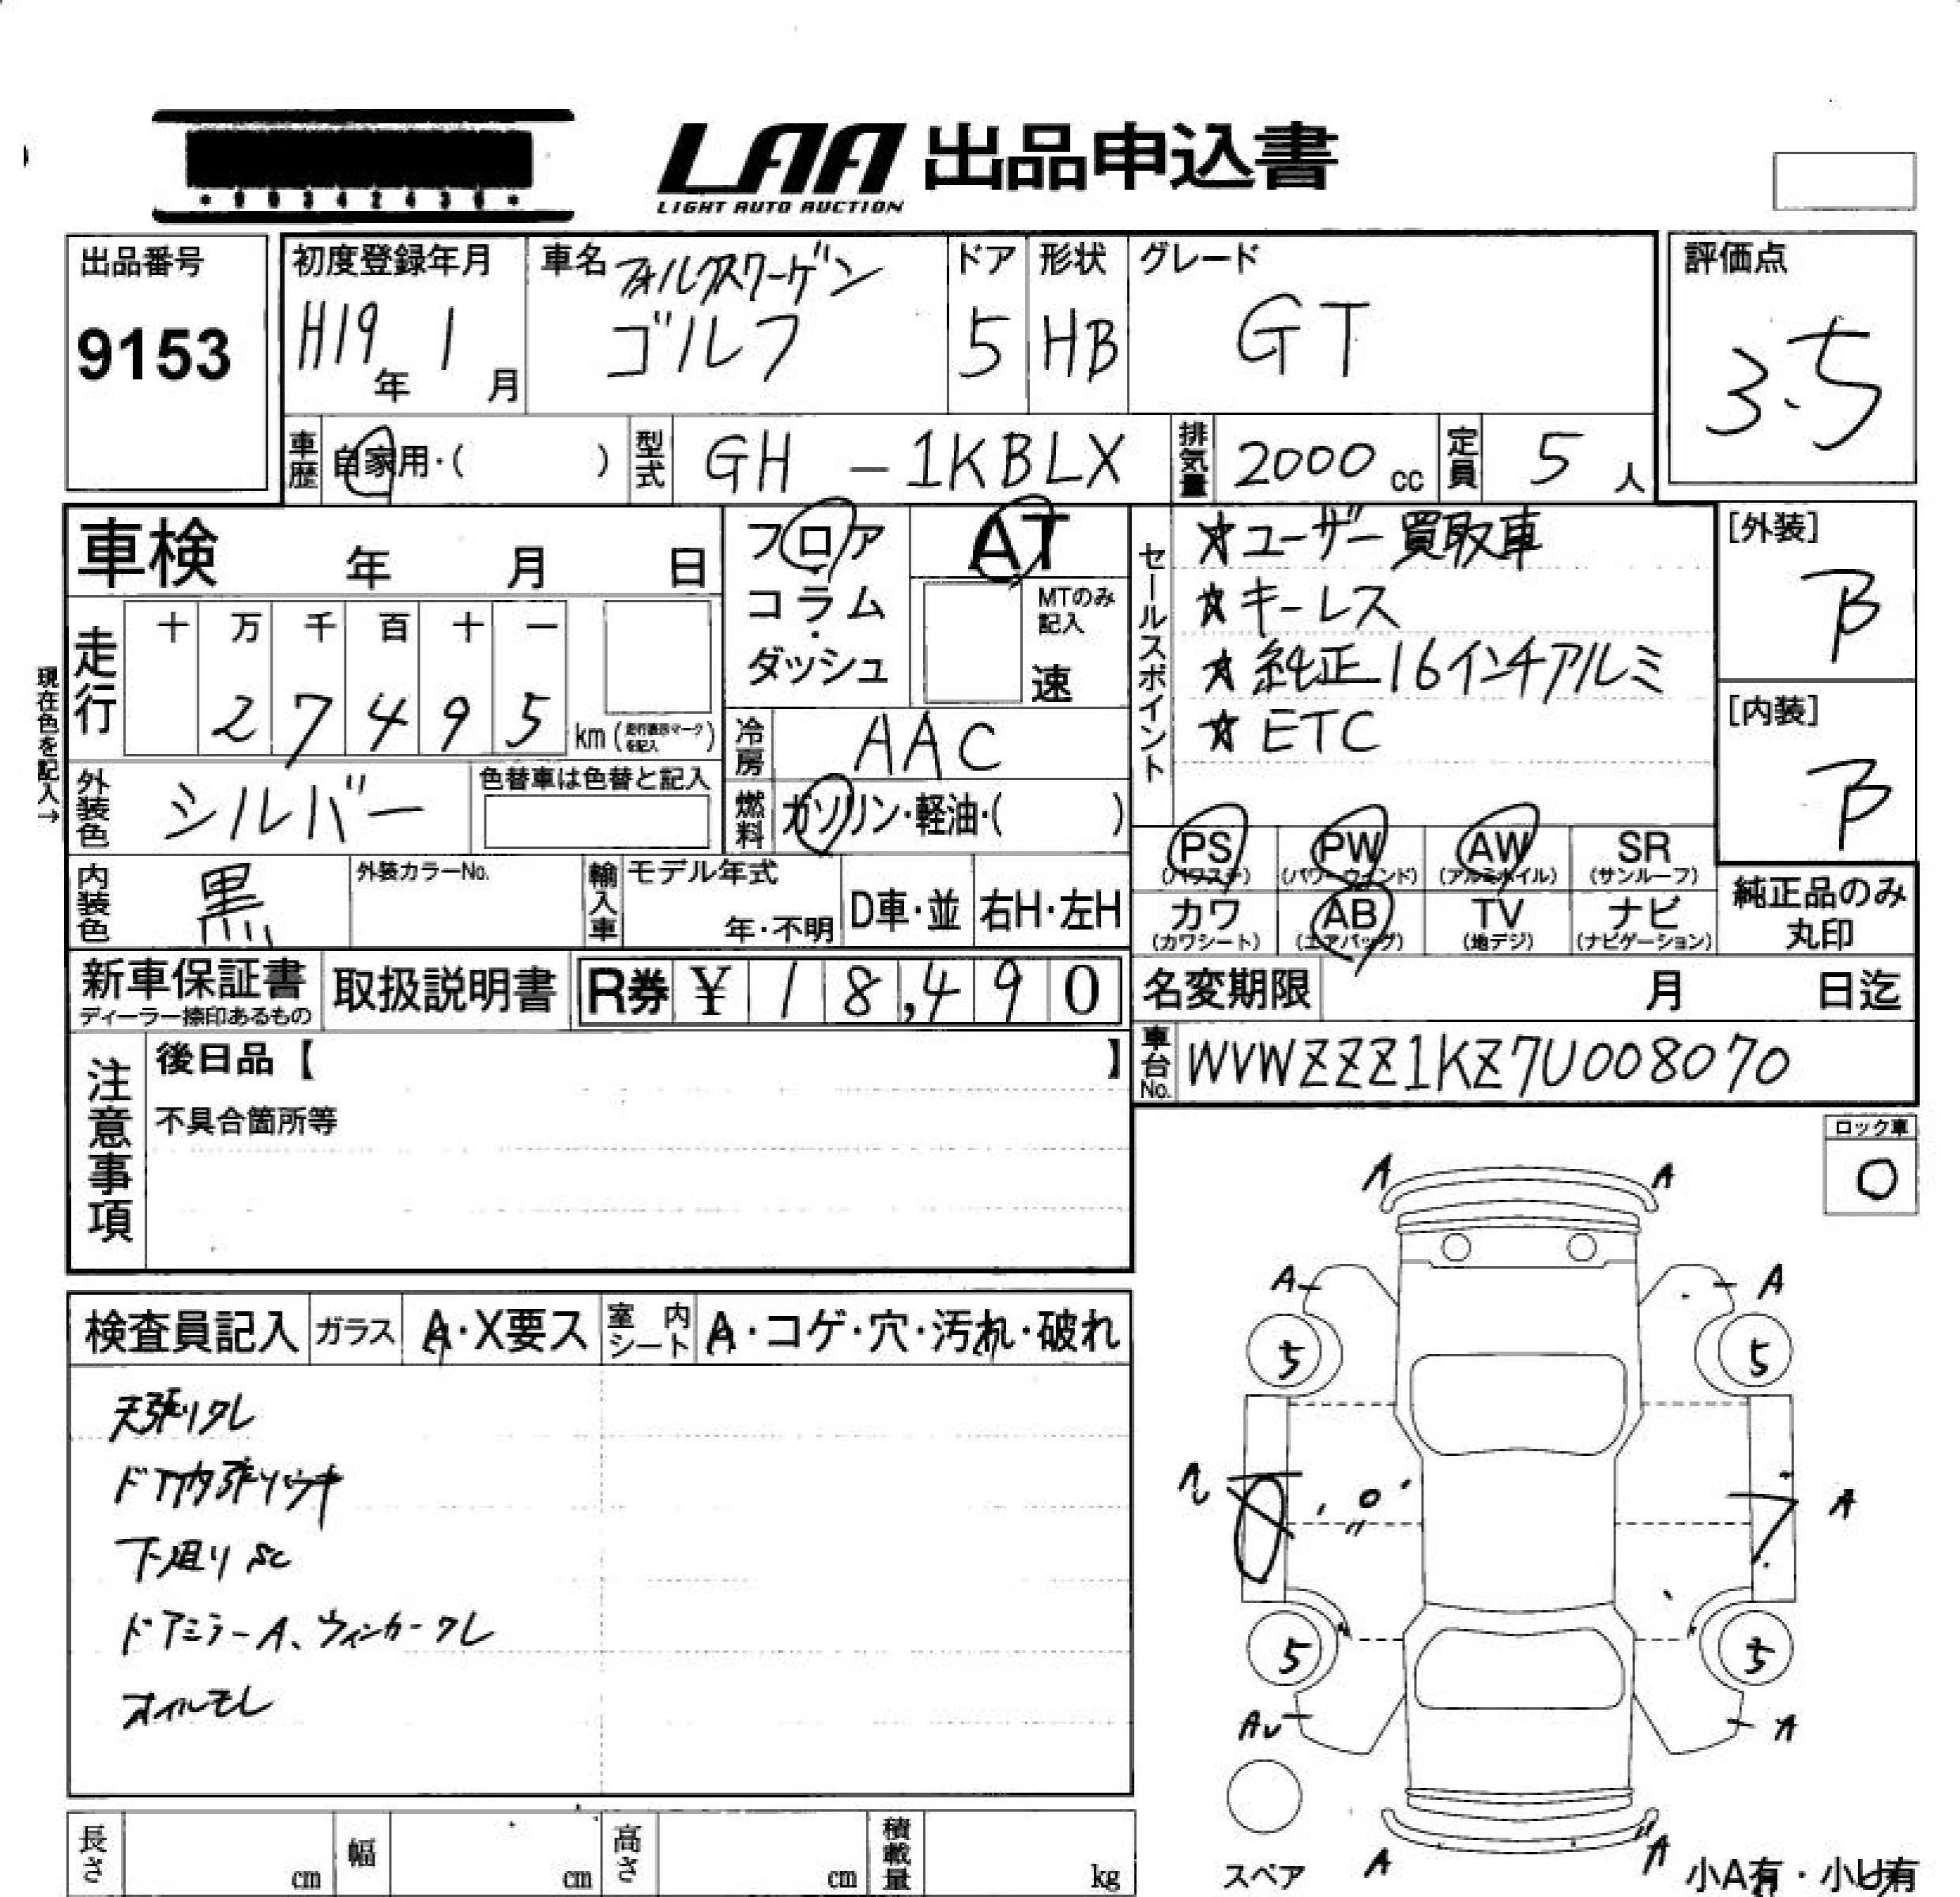 ・90342436・
LAA 出品申込書
LIGHT AUTO AUCTION
出品番号
9153
初度登録年月
H19年 1月
車名 フォルクスワーゲン
ゴルフ
ドア
5
形状
HB
グレード
GT
評価点
3.5
車歴 自家用・( )
型式 GH - 1KBLX
排気量 2000 cc
定員 5 人
車検 年 月 日
フロア
コラム
・
ダッシュ
AT
MTのみ
記入
速
セールスポイント
☆ユーザー買取車
☆キーレス
☆純正16インチアルミ
☆ETC
[外装]
B
[内装]
B
現在色を記入→
走行
十 万 千 百 十 一
2 7 4 9 5 km(
を記入 )
冷房 AAC
外装色 シルバー
色替車は色替と記入
燃料 ガソリン・軽油・( )
PS
(パワステ)
PW
(パワーウインド)
AW
(アルミホイル)
SR
(サンルーフ)
内装色 黒
外装カラーNo.
輸入車
モデル年式
年・不明
D車・並
右H・左H
カワ
(カワシート)
AB
(エアバッグ)
TV
(地デジ)
ナビ
(ナビゲーション)
純正品のみ
丸印
新車保証書
ディーラー捺印あるもの
取扱説明書
R券 ¥ 18,490
名変期限 月 日迄
車台No. WVWZZZ1KZ7U008070
注意事項
後日品【 】
不具合箇所等
ロック車
O
検査員記入
ガラス A・X要ス
室内シート A・コゲ・穴・汚れ・破れ
天張りクレ
ドア内張りウキ
下廻りSC
ドアミラーA、ウィンカークレ
オイルモレ
A A
A A
5 5
A
5 5
A
A A
スペア
小A有・小U有
長さ cm
幅 cm
高さ cm
積載量 kg